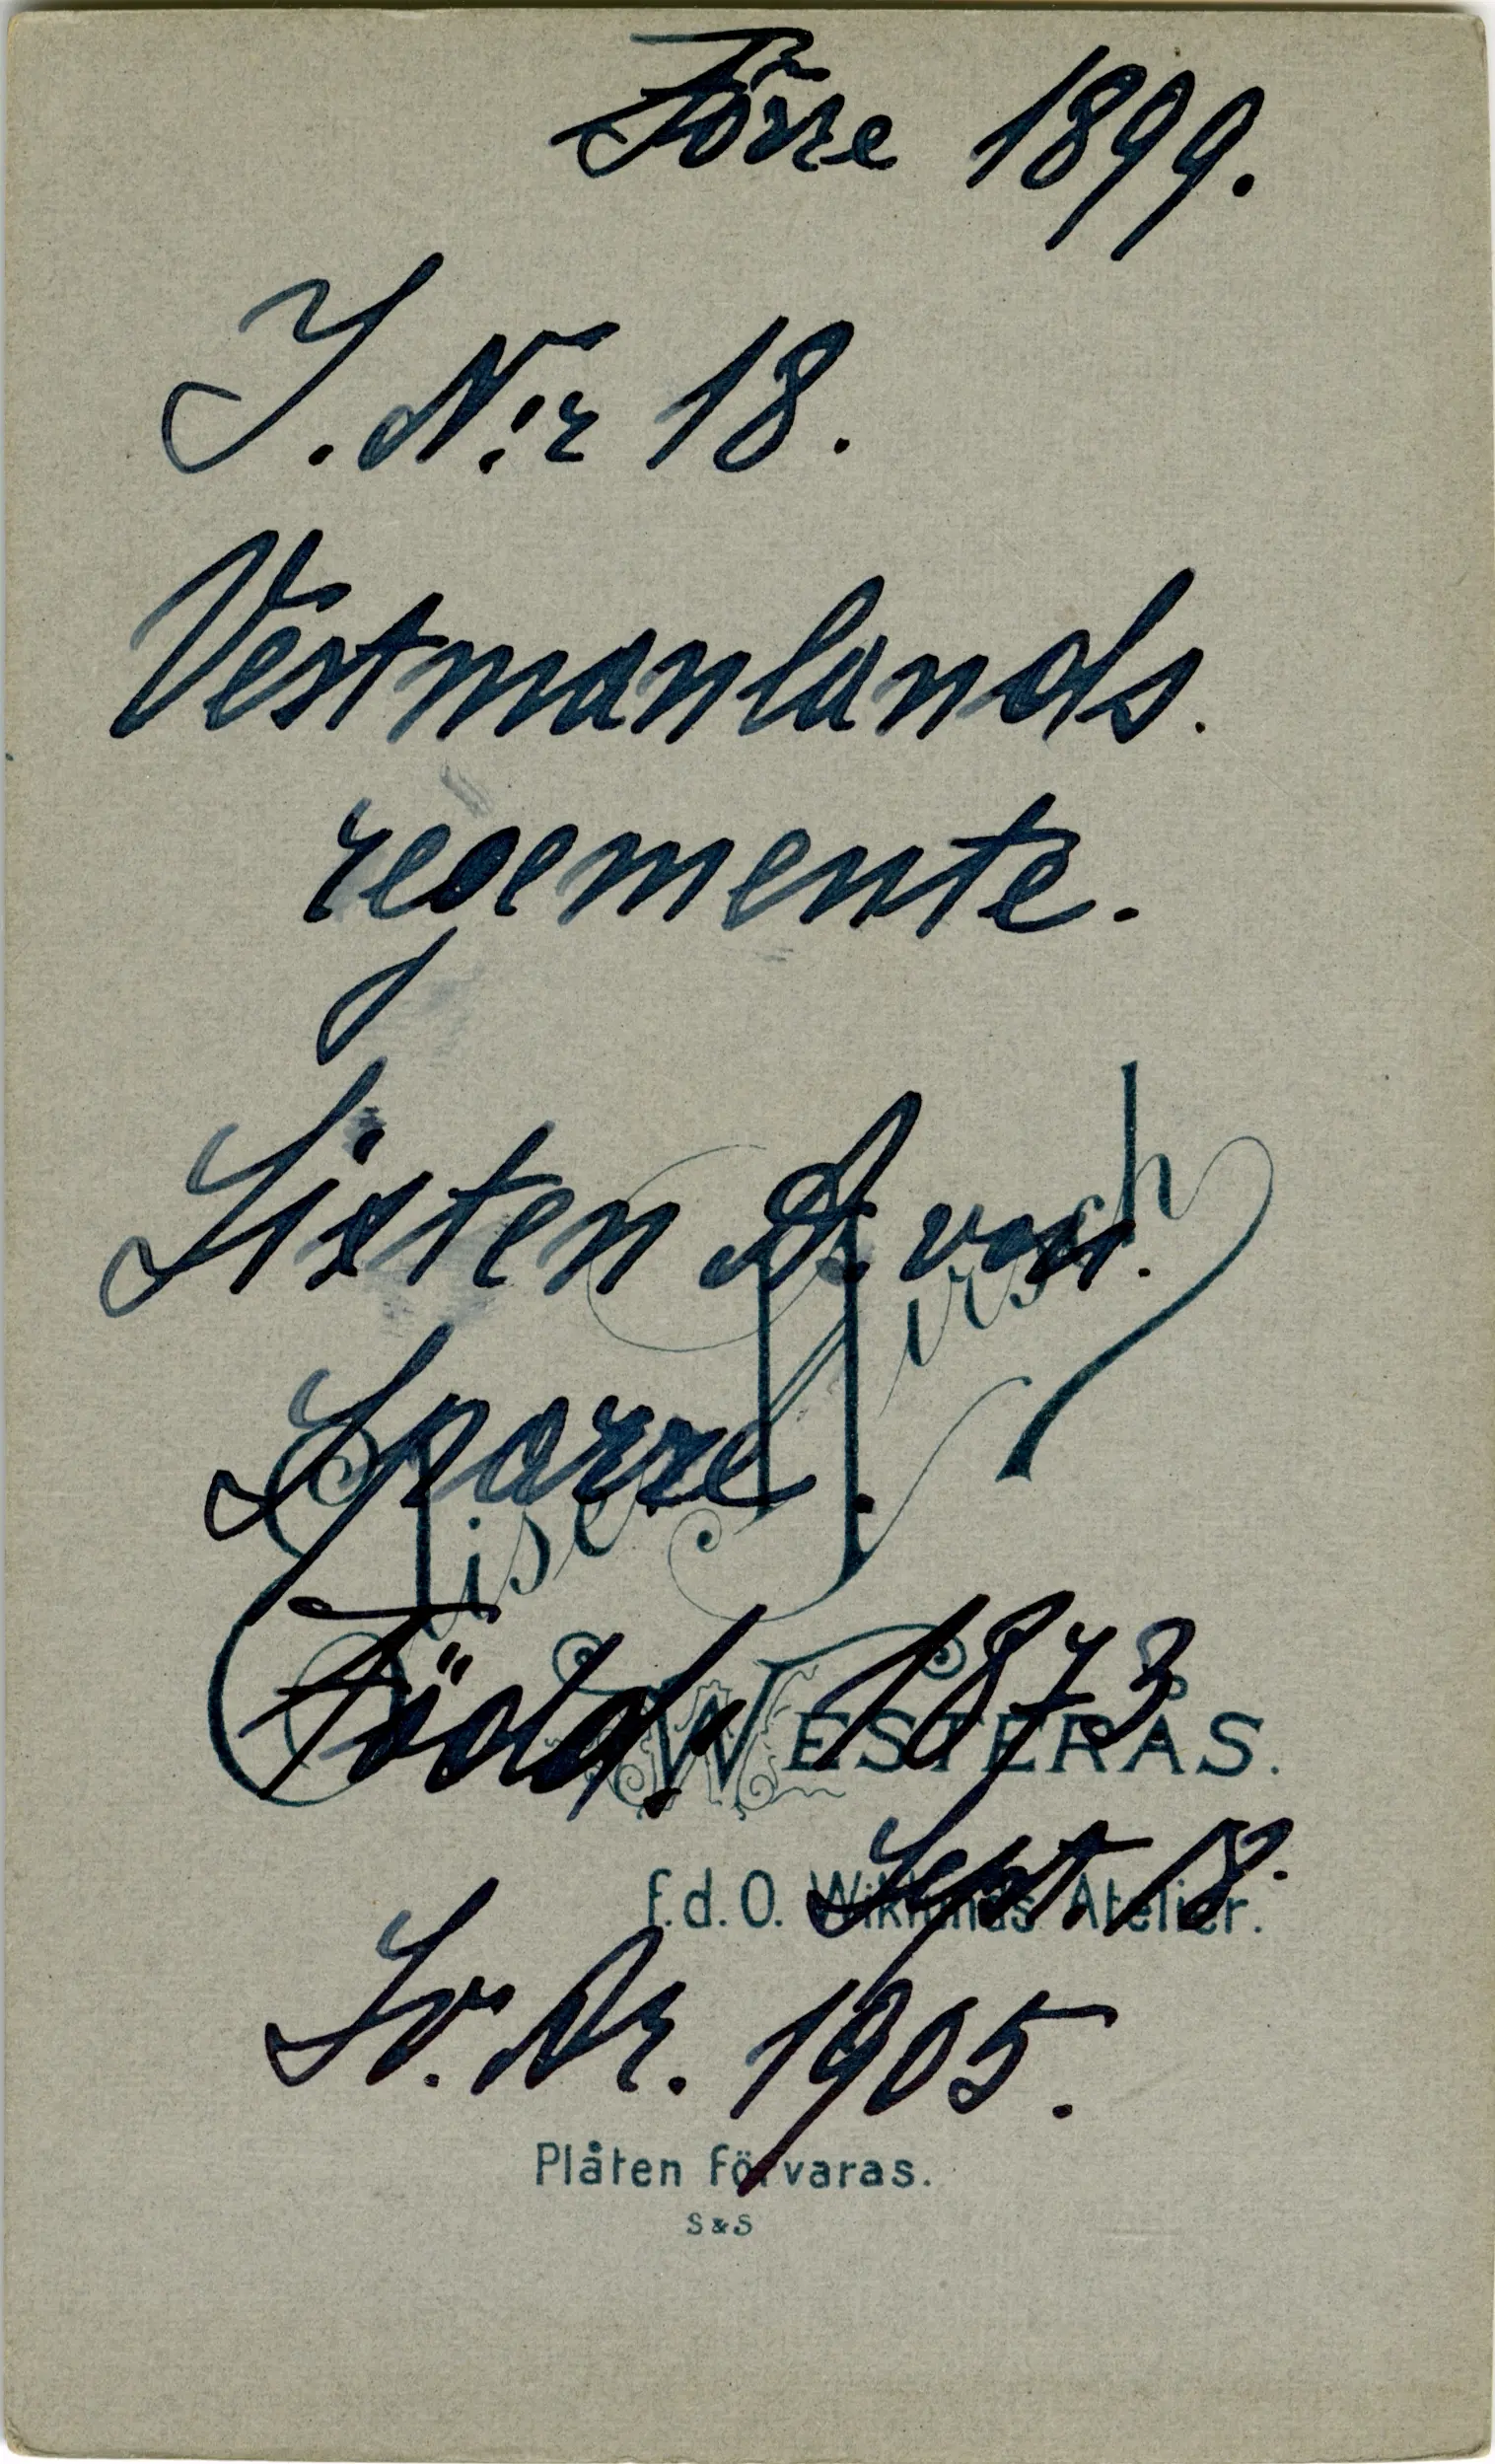 Förre 1899.
I. N:r 18.
Vestmanlands.
regemente.
Sixten A. von.
Hirsch
Sparre.
Född. 1873
WESTERÅS.
Sept. 18.
f.d. O. Wiklunds Atelier.
Sv. Nr. 1905.
Plåten förvaras.
S & S